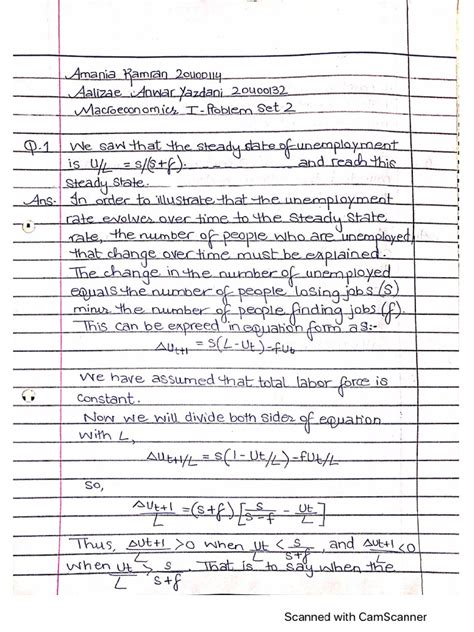 Amania Kamran 20400114
Aalizae Anwar Yazdani 20400132
Macroeconomics I-Poblem Set 2
Q.1 We saw that the steady state of unemployment
is U/L = s/(s+f). and reach this
steady state.
Ans: In order to illustrate that the unemployment
rate evolves over time to the steady state
rate, the number of people who are unemployed,
that change over time must be explained.
The change in the number of unemployed
equals the number of people losing jobs (s)
minus the number of people finding jobs (f).
This can be expreed in equation form as:-
ΔUt+1 = s(L-Ut)-fUt
We have assumed that total labor force is
constant.
Now we will divide both sides of equation
with L,
ΔUt+1/L = s(1-Ut/L)-fUt/L
So,
ΔUt+1/L = (s+f) [s/s-f - Ut/L]
Thus, ΔUt+1/L >0 when Ut/L < s/s+f, and ΔUt+1/L <0
when Ut/L > s/s+f. That is to say when the
Scanned with CamScanner